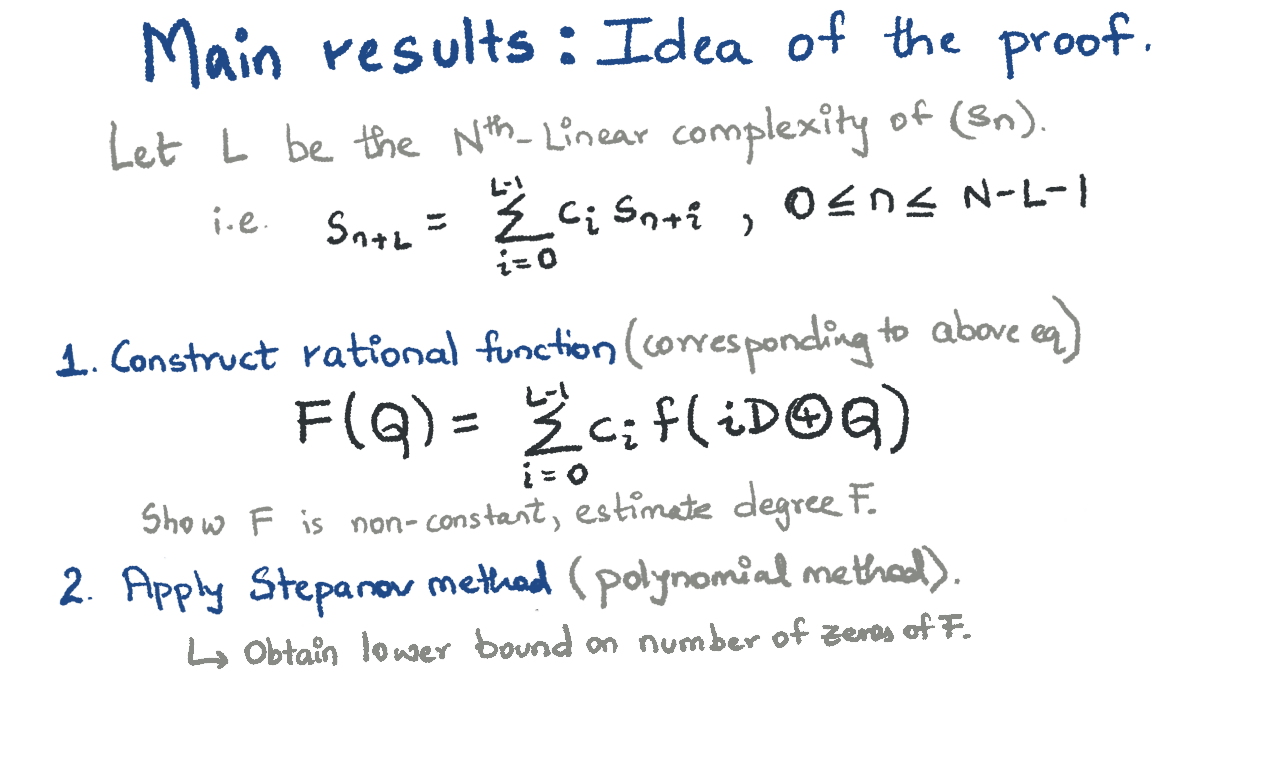 Main results: Idea of the proof.
Let L be the Nth-Linear complexity of (Sn).
i.e. S_{n+L} = \sum_{i=0}^{L-1} c_i S_{n+i} , 0 ≤ n ≤ N-L-1
1. Construct rational function (corresponding to above eq)
F(Q) = \sum_{i=0}^{L-1} c_i f(iD⊕Q)
Show F is non-constant, estimate degree F.
2. Apply Stepanov method (polynomial method).
↳ Obtain lower bound on number of zeros of F.